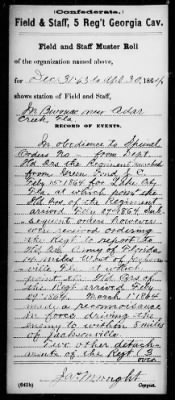 (Confederate.)
Field & Staff, 5 Reg't Georgia Cav.
Field and Staff Muster Roll
of the organization named above,
for Dec 31 43 to Apl 30, 1864
shows station of Field and Staff,
In Bivouac near Cedar
Creek, Fla.
RECORD OF EVENTS.
In obedience to Special
Orders No from Dept
Hd Qrs the Regiment marched
from Green Pond, S. C.
Feby 15" 1864 for Lake City
Fla at which point the
Hd Qrs of the Regiment
arrived Feby 1864. Sub-
sequent orders however
were received ordering
the Regt to report to
Hd Qrs Army of Florida
miles West of Jackson-
ville Fla at which
point the Hd Qrs of the
Regt arrived Feby
1864. March 1" 1864
made a reconnoisance
in force driving the
enemy to within 8 miles
of Jacksonville.
Two other detach-
ments of the Regt (3
over
Jas Mcnought
(642b) Copyist.